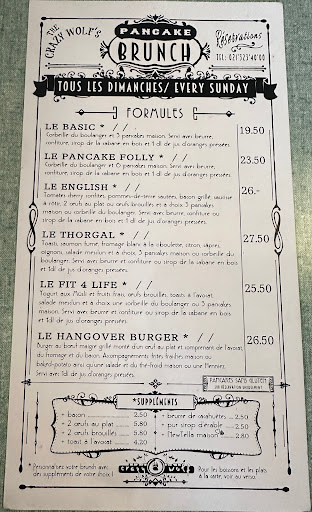 THE CRAZY WOLF'S
PANCAKE
BRUNCH
Réservations
TEL: 021'323'40'00
TOUS LES DIMANCHES/ EVERY SUNDAY
FORMULES
LE BASIC * / / 19.50
Corbeille du boulanger et 3 pancakes maison. Servi avec beurre,
confiture, sirop de la cabane en bois et 1 dl de jus d'oranges pressées.
LE PANCAKE FOLLY * / / 23.50
Corbeille du boulanger et 6 pancakes maison. Servi avec beurre,
confiture, sirop de la cabane en bois et 1 dl de jus d'oranges pressées.
LE ENGLISH * / / 26.-
Tomates cherry confites, pommes-de-terre sautées, bacon grillé, saucisse
à rôtir, 2 œufs au plat ou œufs brouillés et à choix 3 pancakes
maison ou corbeille du boulanger. Servi avec beurre, confiture ou
sirop de la cabane en bois et 1 dl de jus d'oranges pressées.
LE THORGAL * / / 27.50
Toasts, saumon fumé, fromage blanc à la ciboulette, citron, câpres,
oignons, salade mesclun et à choix, 3 pancakes maison ou corbeille du
boulanger. Servi avec beurre et confiture ou sirop de la cabane en bois
et 1dl de jus d'oranges pressées.
LE FIT 4 LIFE * / / 25.50
Yogurt aux Müsli et fruits frais, œufs brouillés, toasts à l'avocat,
salade mesclun et à choix une corbeille du boulanger ou 3 pancakes
maison. Servi avec beurre et confiture ou sirop de la cabane en bois
et 1dl de jus d'oranges pressées.
LE HANGOVER BURGER * 26.50
Burger au bœuf maigre grillé monté d'un œuf au plat et comprenant de l'avocat,
du fromage et du bacon. Acompagnements: frites fraîches maison ou
baked-potato ainsi qu'une salade et du thé-froid maison ou une Henniez.
Servi avec 1dl de jus d'oranges pressées.
PANCAKES SANS GLUTEN
SUR RÉSERVATION UNIQUEMENT
*SUPPLÉMENTS
+ bacon 2.50 + beurre de cacahuètes 2.50
+ 2 œufs au plat 5.80 + pur sirop d'érable 2.50
+ 2 œufs brouillés 5.80 + NewTella maison 2.80
+ toast à l'avocat 4.20
* Personnalisez votre brunch avec
des suppléments de votre choix!
CRAZY WOLF
Pour les boissons et les plats
à la carte, voir au verso.